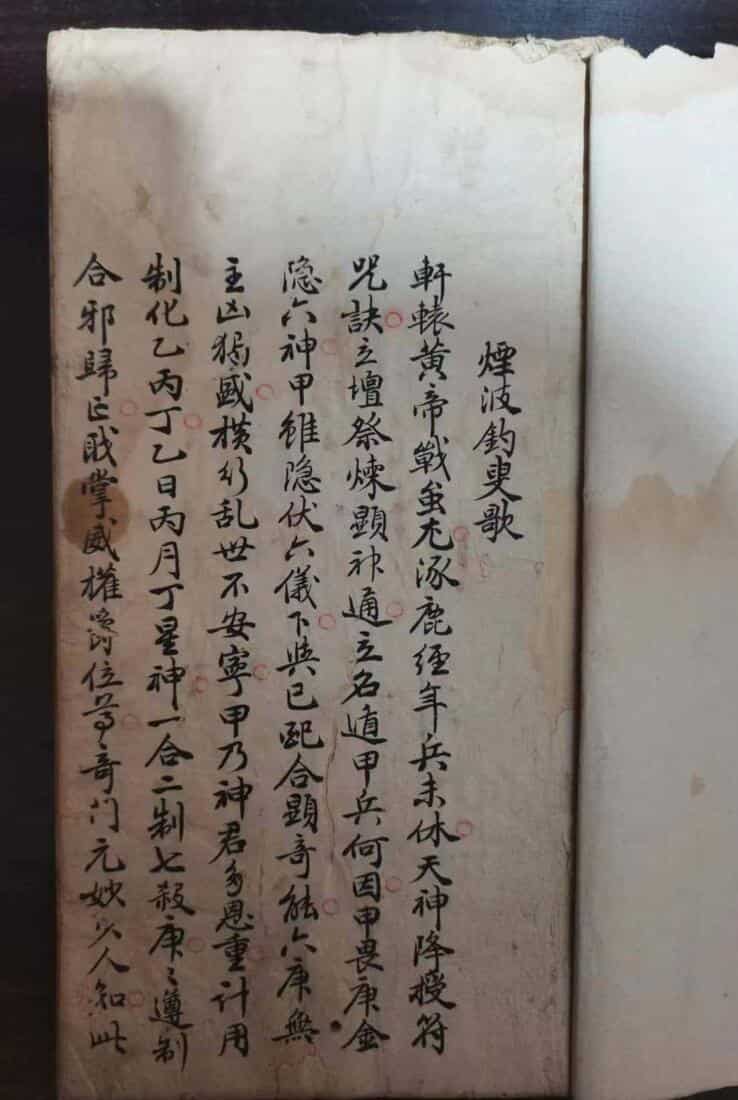 煙波釣叟歌
軒轅黄帝戰蚩尤涿鹿经年兵未休天神降授符
咒訣立壇祭煉顯神通立名遁甲兵何因甲畏庚金
隐六神甲雖隐伏六儀下與己配合顯奇能六庚無
主凶猖盛横行乱世不安寧甲乃神君多恩重计用
制化乙丙丁乙日丙月丁星神一合二制七殺庚〻遵制
合邪歸正戝掌威權爵位尊奇门元妙少人知此